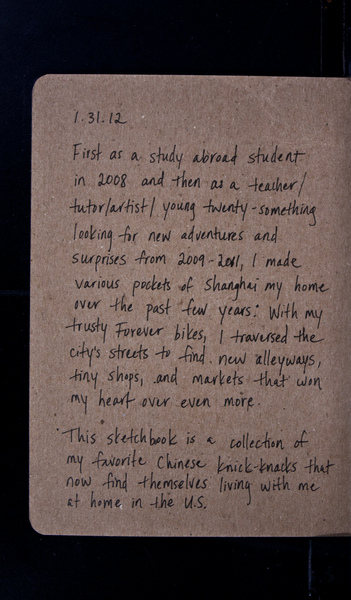 1.31.12
First as a study abroad student
in 2008 and then as a teacher/
tutor/artist/ young twenty-something
looking for new adventures and
surprises from 2009-2011, I made
various pockets of Shanghai my home
over the past few years. With my
trusty Forever bikes, I traversed the
city's streets to find new alleyways,
tiny shops, and markets that won
my heart over even more.
This sketchbook is a collection of
my favorite Chinese knick-knacks that
now find themselves living with me
at home in the U.S.